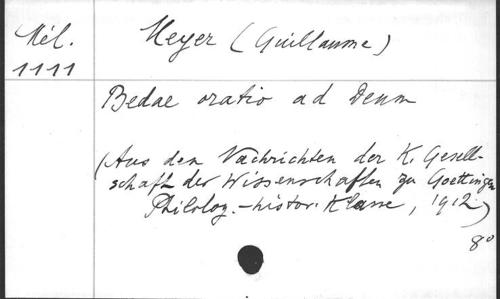 Mél. 1111
Meyer (Guillaume)
Bedae oratio ad Deum
(Aus den Nachrichten der K. Gesell-
schaft der Wissenschaften zu Goettingen
Philolog.-histor. Klasse, 1912)
8º